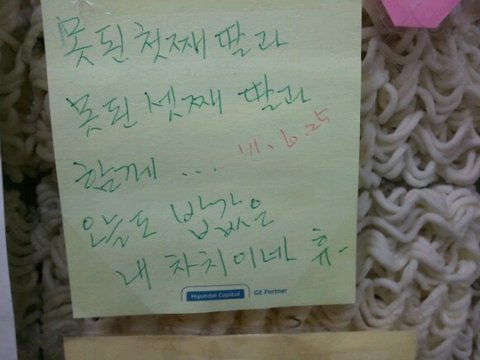 못된 첫째 딸과
못된 셋째 딸과
함께 ... '11. 6. 25
오늘도 밥값은
내 차치이네 휴-
Hyundai Capital GE Partner